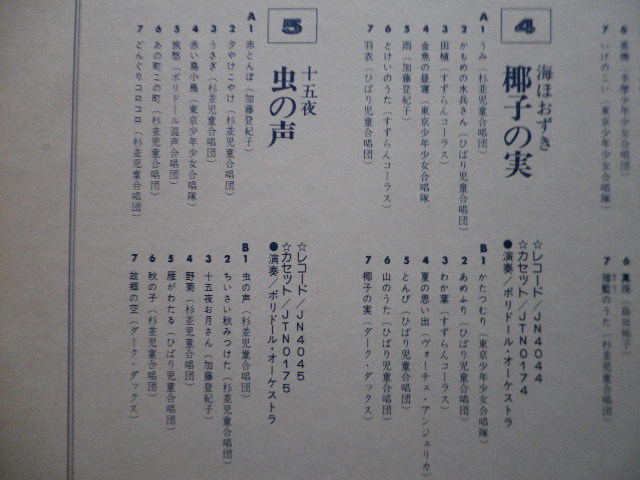 4
海ほおずき
椰子の実
☆レコード／JN4044
☆カセット／JTN0174
●演奏／ポリドール・オーケストラ
A1 うみ（杉並児童合唱団）
2 かもめの水兵さん（ひばり児童合唱団）
3 田植（すずらんコーラス）
4 金魚の昼寝（東京少年少女合唱隊）
5 雨（加藤登紀子）
6 とけいのうた（すずらんコーラス）
7 羽衣（ひばり児童合唱団）
B1 かたつむり（東京少年少女合唱隊）
2 あめふり（ひばり児童合唱団）
3 わか葉（すずらんコーラス）
4 夏の思い出（ヴォーチェ・アンジェリカ）
5 とんび（ひばり児童合唱団）
6 山のうた（ひばり児童合唱団）
7 椰子の実（ダーク・ダックス）
5
十五夜
虫の声
☆レコード／JN4045
☆カセット／JTN0175
●演奏／ポリドール・オーケストラ
A1 赤とんぼ（加藤登紀子）
2 夕やけこやけ（ひばり児童合唱団）
3 うさぎ（杉並児童合唱団）
4 赤い鳥小鳥（東京少年少女合唱隊）
5 旅愁（ポリドール混声合唱団）
6 あの町この町（杉並児童合唱団）
7 どんぐりコロコロ（杉並児童合唱団）
B1 虫の声（杉並児童合唱団）
2 ちいさい秋みつけた（杉並児童合唱団）
3 十五夜お月さん（加藤登紀子）
4 野菊（杉並児童合唱団）
5 雁がわたる（ひばり児童合唱団）
6 秋の子（杉並児童合唱団）
7 故郷の空（ダーク・ダックス）